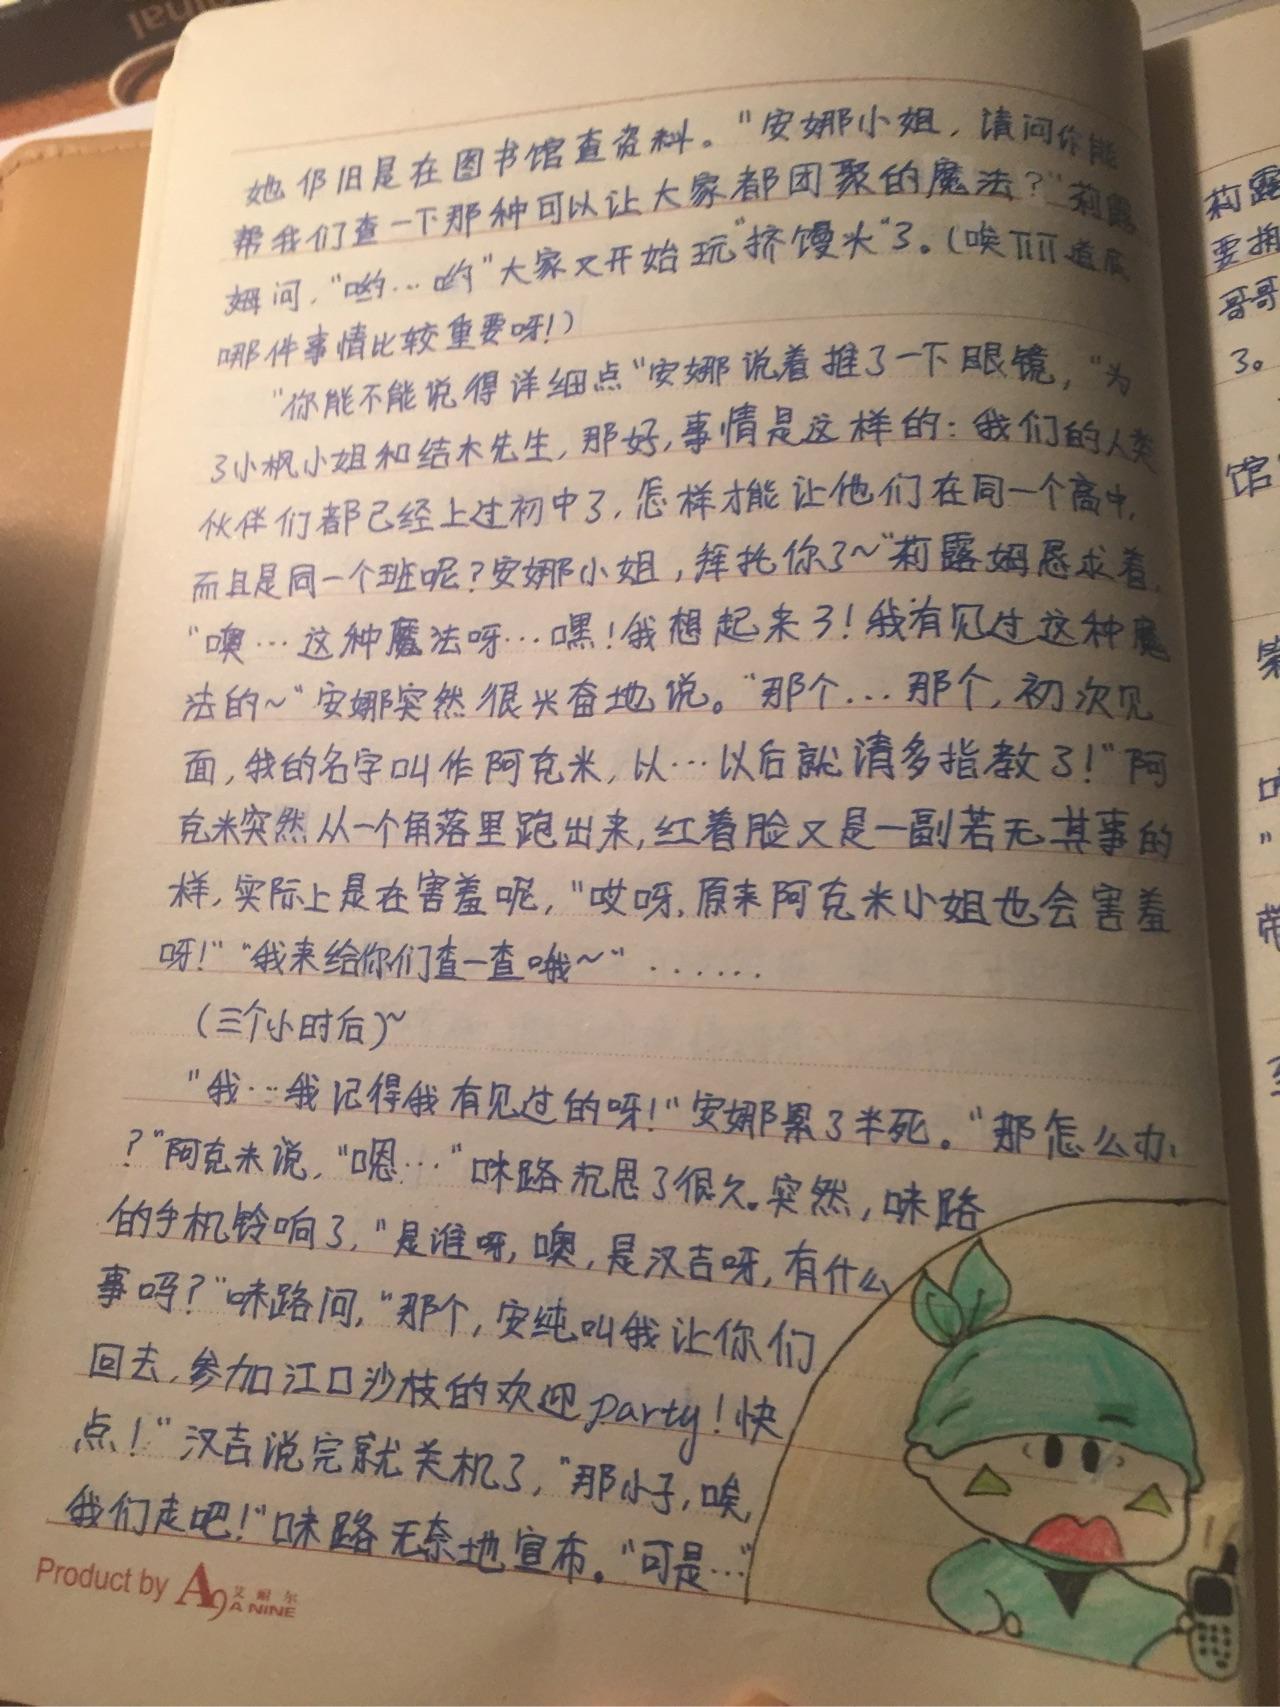 她仍旧是在图书馆查资料。"安娜小姐，请问你能
帮我们查一下那种可以让大家都团聚的魔法?"莉露
姆问,"哟…哟"大家又开始玩"挤馒头"了。(唉TT道底
哪件事情比较重要呀!)
"你能不能说得详细点"安娜说着推了一下眼镜,"为
了小枫小姐和结木先生,那好,事情是这样的:我们的人类
伙伴们都已经上过初中了,怎样才能让他们在同一个高中,
而且是同一个班呢?安娜小姐,拜托你了~"莉露姆恳求着,
"噢…这种魔法呀…嘿!我想起来了!我有见过这种魔
法的~"安娜突然很兴奋地说。"那个…那个,初次见
面,我的名字叫作阿克米,以…以后就请多指教了!"阿
克米突然从一个角落里跑出来,红着脸又是一副若无其事的
样,实际上是在害羞呢,"哎呀,原来阿克米小姐也会害羞
呀!""我来给你们查一查哦~"......
(三个小时后)~
"我…我记得我有见过的呀!"安娜累了半死。"那怎么办
?"阿克米说,"嗯…"咪路沉思了很久。突然,咪路
的手机铃响了,"是谁呀,噢,是汉吉呀,有什么
事吗?"咪路问,"那个,安纯叫我让你们
回去,参加江口沙枝的欢迎party!快
点!"汉吉说完就关机了,"那小子,唉,
我们走吧!"咪路无奈地宣布。"可是…"
Product by A9 艾耐尔
A NINE
莉露
要拥
哥哥
了。
馆